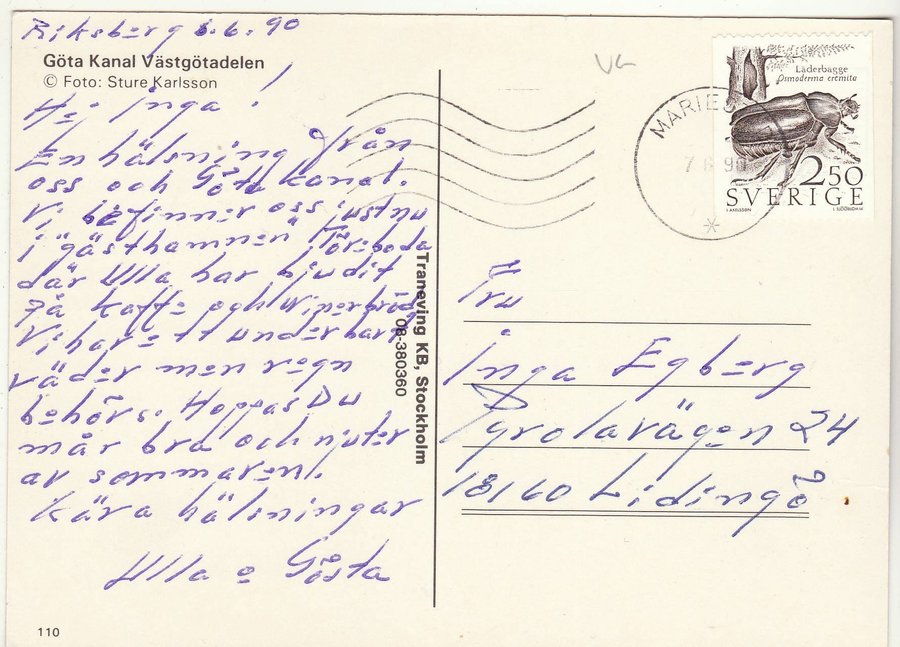 Riksberg 6.6.90
Göta Kanal Västgötadelen
© Foto: Sture Karlsson
Hej Inga!
En hälsning från
oss och Göta kanal.
Vi befinner oss just nu
i gästhamnen Töreboda
där Ulla har bjudit
på kaffe och wienerbröd.
Vi har ett underbart
väder men regn
behövs. Hoppas Du
mår bra och njuter
av sommaren.
Kära hälsningar
Ulla o Gösta
110
Traneving KB, Stockholm
08-380360
VG
MARIES
7 6 90
Läderbagge
Osmoderma eremita
2.50
SVERIGE
Fru
Inga Egberg
Pyrolavägen 24
18160 Lidingö